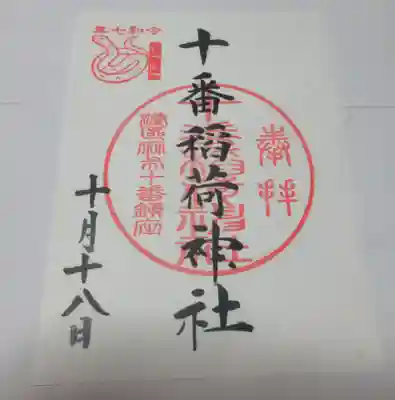 奉拝
十番稲荷神社
港区麻布十番鎮座
令和七年
十月十八日